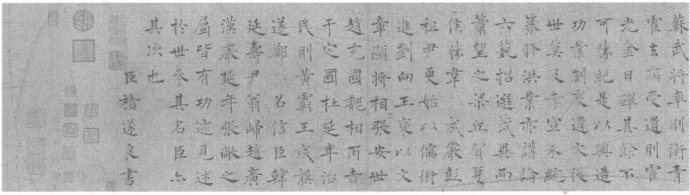 蘇武將率則衛青
霍去病受遺則霍
光金日磾其餘不
可勝紀是以興造
功業制度遺文後
世莫及孝宣承統
纂脩洪業亦講論
六藝招選茂異而
蕭望之梁丘賀夏
侯勝韋成嚴彭
祖尹更始以儒術
進劉向王褒以文
章顯將相張安世
趙充國魏相丙吉
于定國杜延年治
民則黃霸王成龔
遂鄭召信臣韓
延壽尹翁歸趙廣
漢嚴延年張敞之
屬皆有功迹見述
於世參其名臣亦
其次也
臣褚遂良書